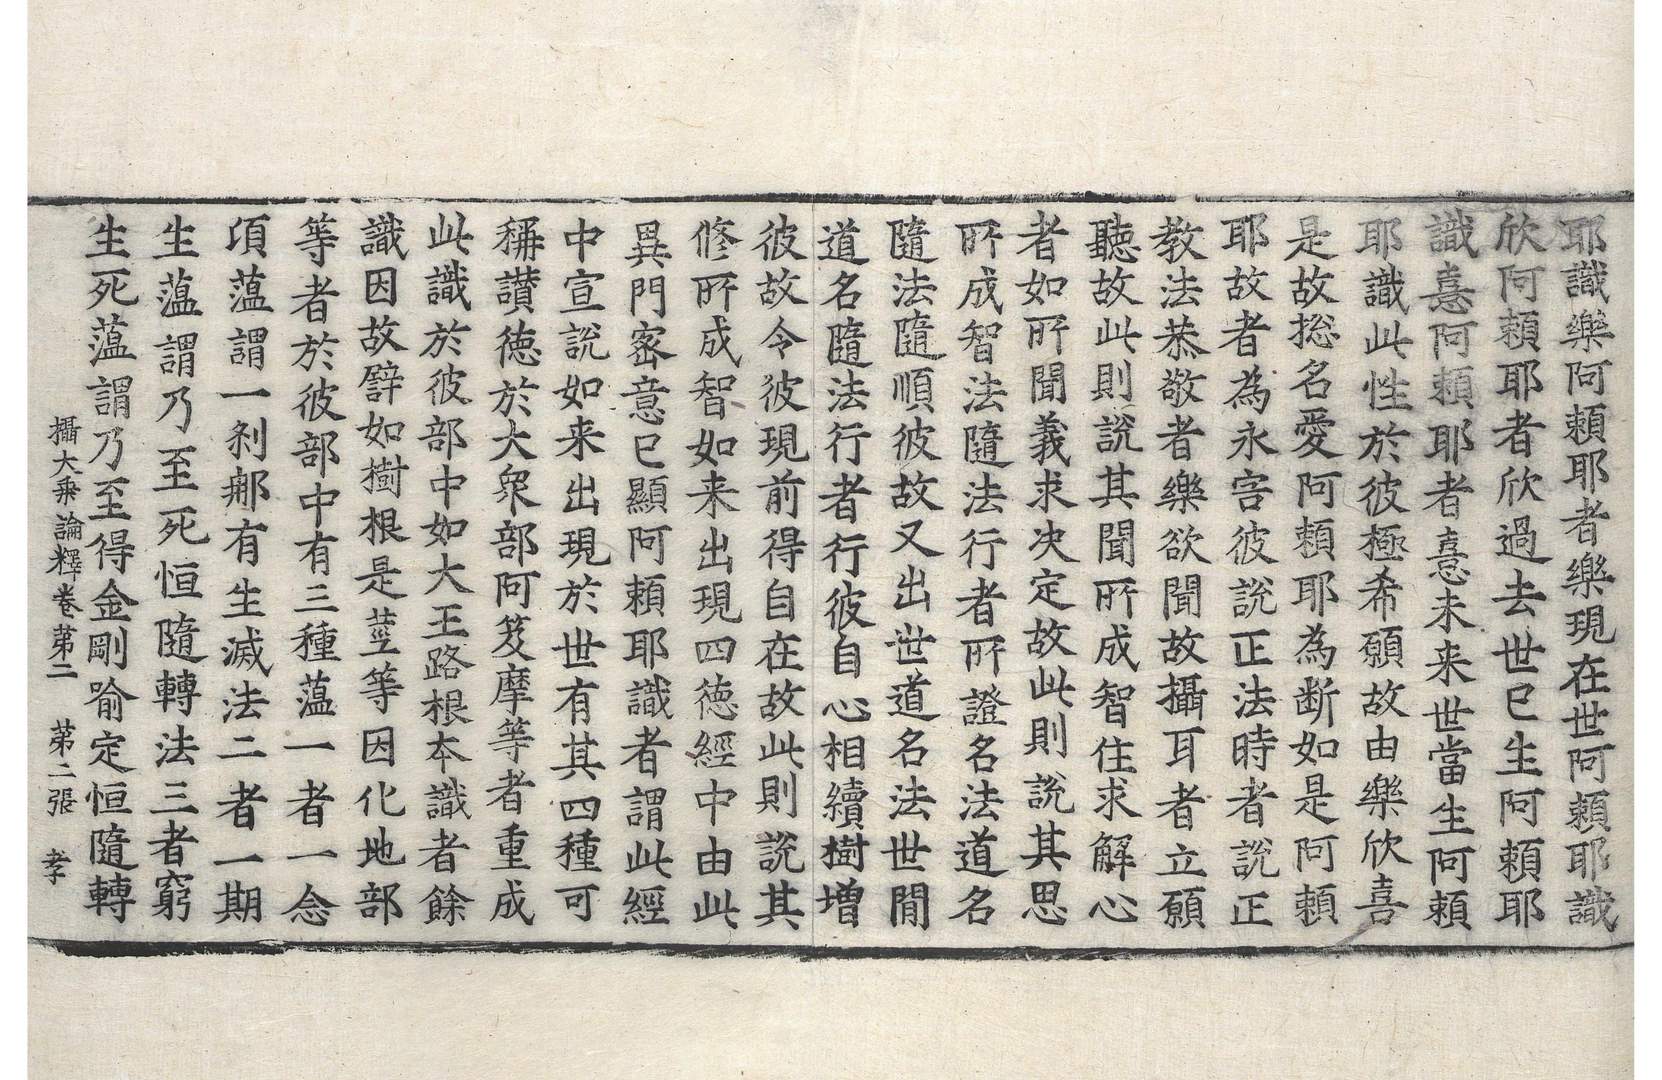 耶識樂阿賴耶者樂現在世阿賴耶識
欣阿賴耶者欣過去世已生阿賴耶
識憙阿賴耶者憙未来世當生阿賴
耶識此性於彼極希願故由樂欣喜
是故揔名愛阿賴耶為断如是阿賴
耶故者為永害彼說正法時者說正
教法恭敬者樂欲聞故攝耳者立願
聽故此則說其聞所成智住求解心
者如所聞義求决定故此則說其思
所成智法隨法行者所證名法道名
隨法隨順彼故又出世道名法世間
道名隨法行者行彼自心相續樹增
彼故令彼現前得自在故此則說其
修所成智如来出現四德經中由此
異門密意已顯阿賴耶識者謂此經
中宣說如来出現於世有其四種可
稱讃德於大衆部阿笈摩等者重成
此識於彼部中如大王路根本識者餘
識因故譬如樹根是莖等因化地部
等者於彼部中有三種蕰一者一念
頃蕰謂一刹那有生滅法二者一期
生蕰謂乃至死恒隨轉法三者窮
生死蕰謂乃至得金剛喻定恒隨轉
攝大乘論釋卷第二　第二張　孝